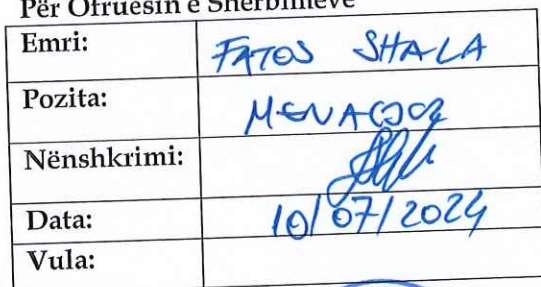 Për Ofruesin e Shërbimeve
Emri: FATOS SHALA
Pozita: MENAGJER
Nënshkrimi:
Data: 10/07/2024
Vula: